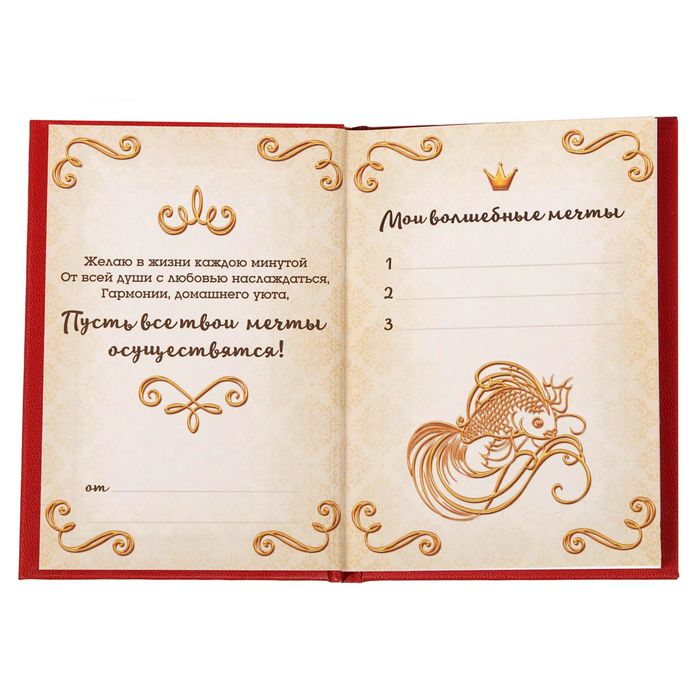 Желаю в жизни каждою минутой
От всей души с любовью наслаждаться,
Гармонии, домашнего уюта,
Пусть все твои мечты
осуществятся!
от
Мои волшебные мечты
1
2
3